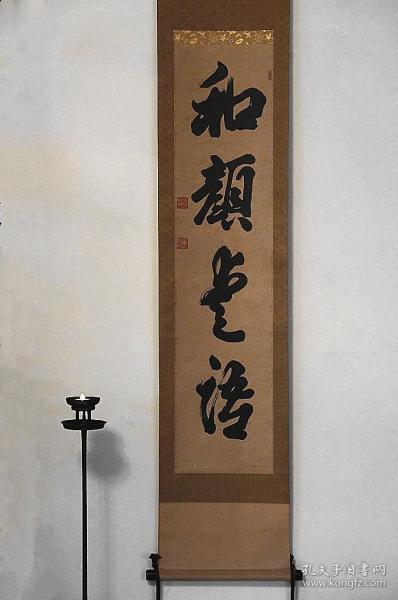 和顔愛語
孔夫子旧书网
www.kongfz.com